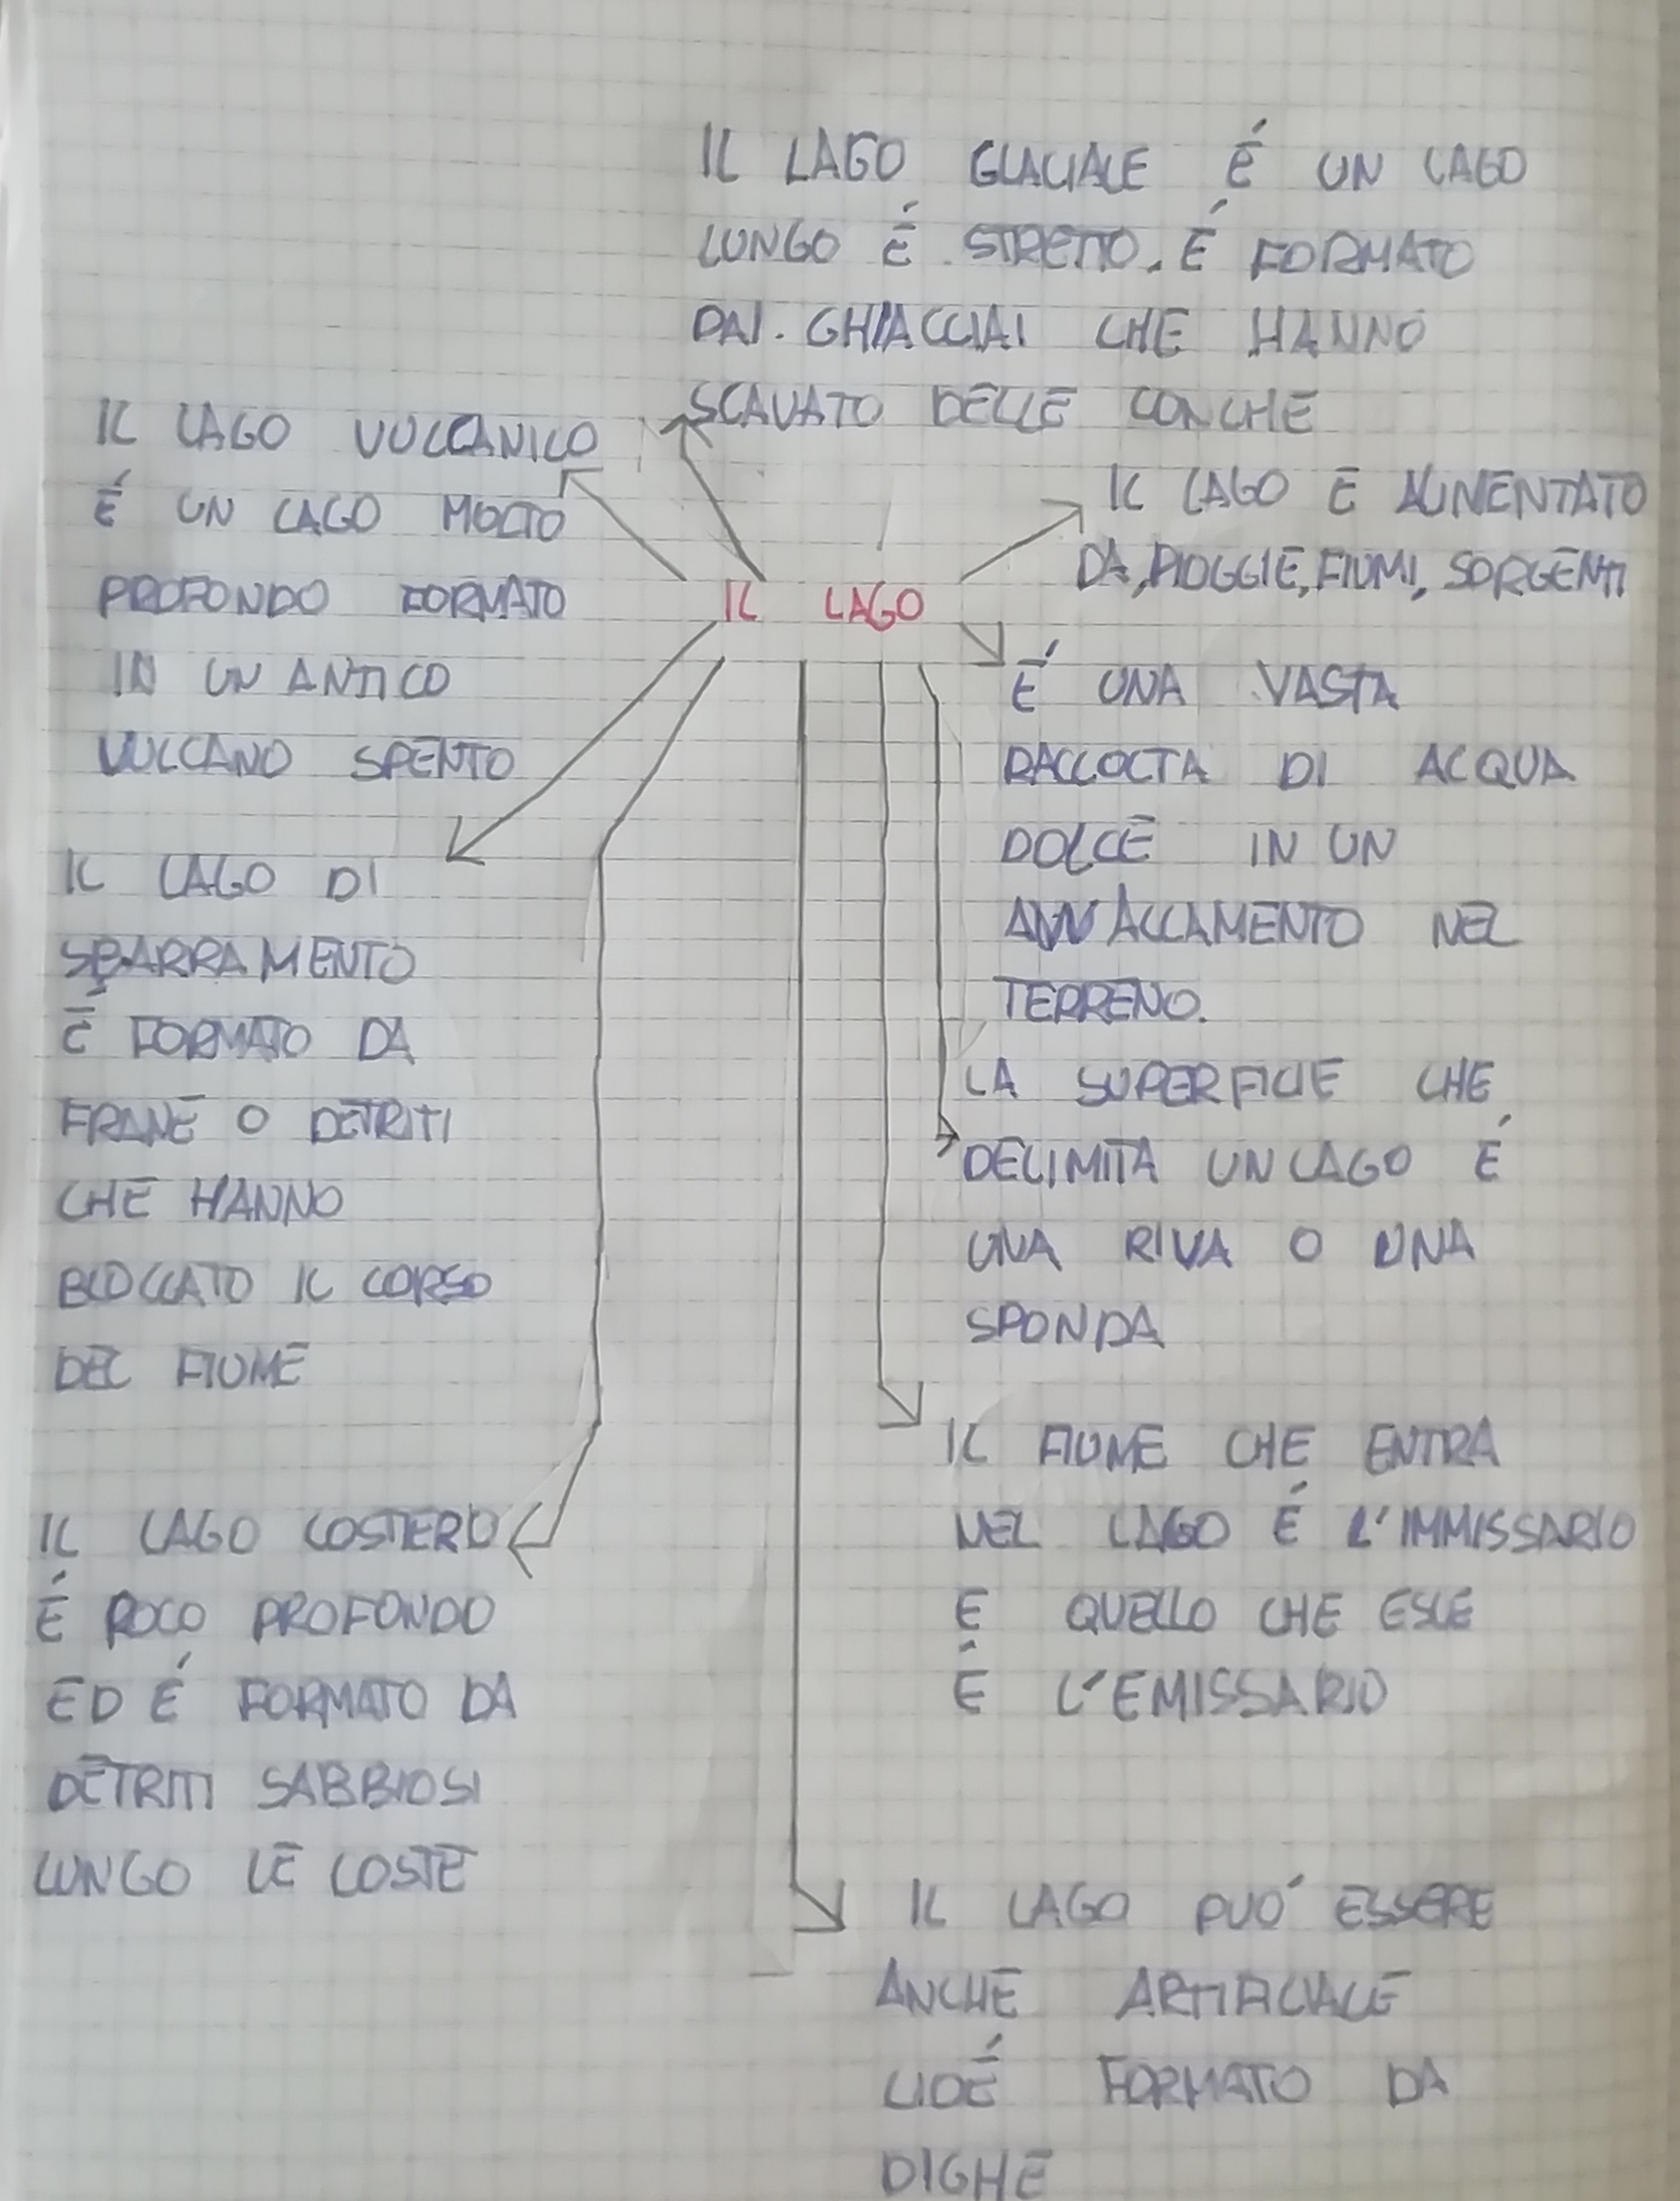 IL LAGO GLACIALE É UN LAGO
LUNGO É STRETTO. É FORMATO
DAI. GHIACCIAI CHE HANNO
SCAVATO DELLE CONCHE
IL LAGO VULCANICO
É UN LAGO MOLTO
PROFONDO FORMATO
IN UN ANTICO
VULCANO SPENTO
IL LAGO E ALIMENTATO
DA, PIOGGIE, FIUMI, SORGENTI
IL LAGO
É UNA VASTA
RACCOLTA DI ACQUA
DOLCE IN UN
AVVALLAMENTO NEL
TERRENO.
IL LAGO DI
SBARRAMENTO
É FORMATO DA
FRANE O DETRITI
CHE HANNO
BLOCCATO IL CORSO
DEL FIUME
LA SUPERFICIE CHE
DELIMITA UN LAGO É
UNA RIVA O UNA
SPONDA
IL FIUME CHE ENTRA
NEL LAGO É L'IMMISSARIO
E QUELLO CHE ESCE
É L'EMISSARIO
IL LAGO COSTIERO
É POCO PROFONDO
ED É FORMATO DA
DETRITI SABBIOSI
LUNGO LE COSTE
IL LAGO PUÓ ESSERE
ANCHE ARTIFICIALE
CIOÉ FORMATO DA
DIGHE